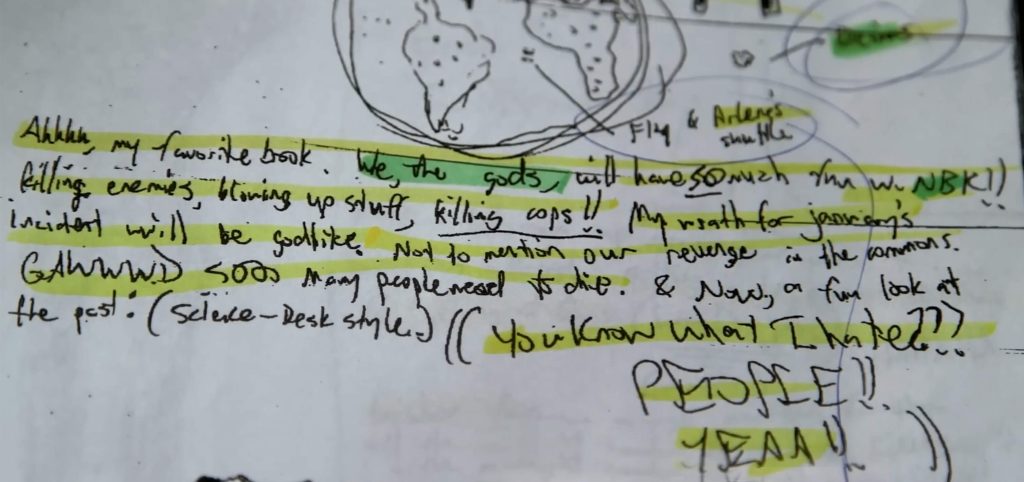 Fly & Arlene's
shuttle
Ahhhh, my favorite book. We, the gods, will have so much fun w. NBK!!
killing enemies, blowing up stuff, killing cops!! My wrath for january's
incident will be godlike. Not to mention our revenge in the commons.
GAWWWD sooo many people need to die. & Now, a fun look at
the past: (Science-Desk style.) (( You know what I hate???
PEOPLE!!
YEAA!! ))